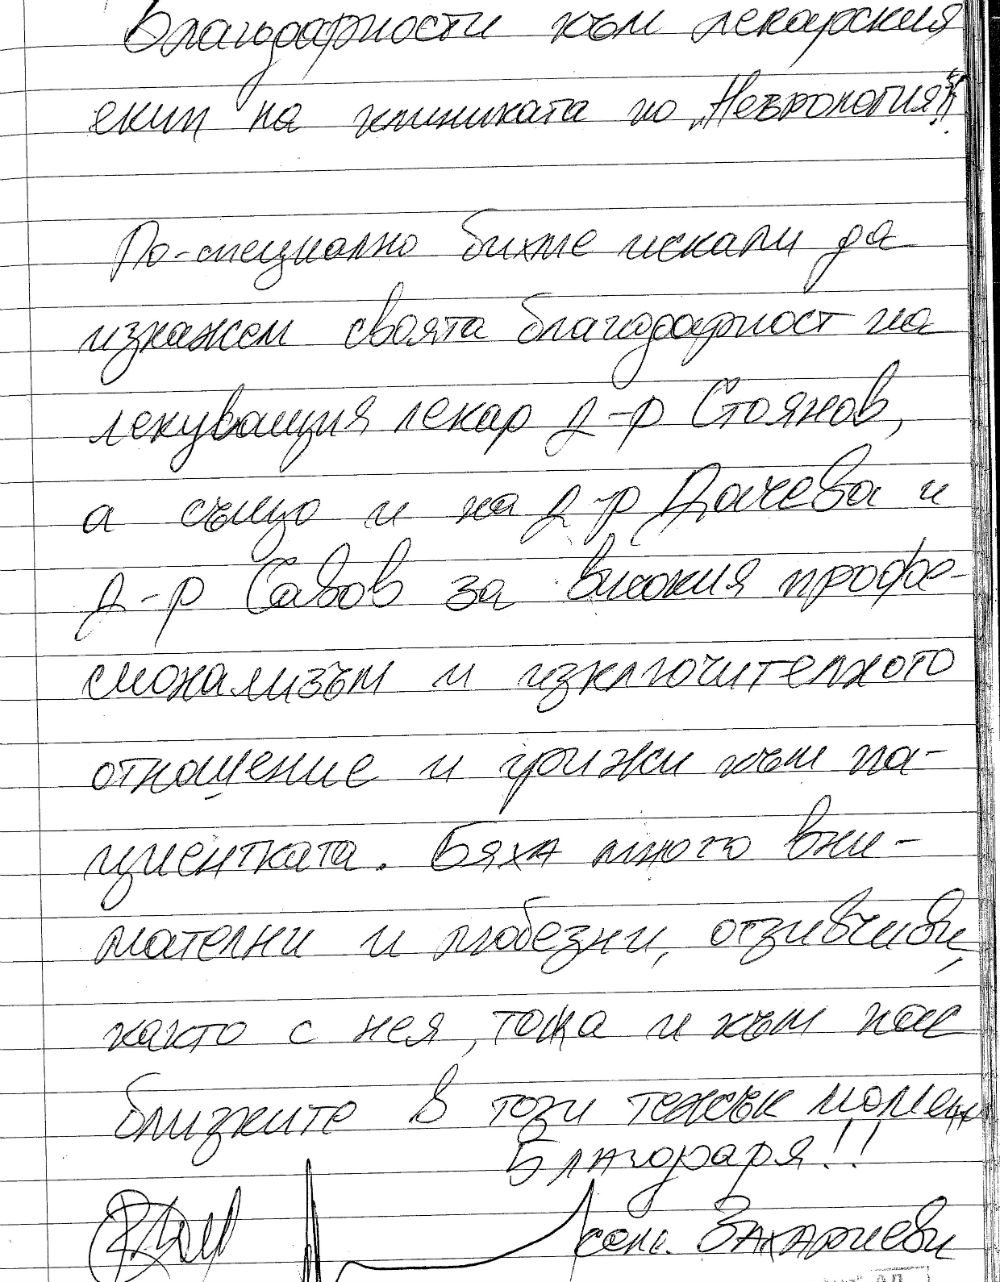 Благодарности към лекарския
екип на клиниката по „Неврология“!
По-специално бихме искали да
изкажем своята благодарност на
лекуващия лекар д-р Стоянов,
а също и на д-р Дачева и
д-р Савов за високия профе-
сионализъм и изключителното
отношение и грижи към па-
циентката. Бяха много вни-
мателни и любезни, отзивчиви,
както с нея, така и към нас
близките в този тежък момент
Благодаря!!
сем. Захариеви